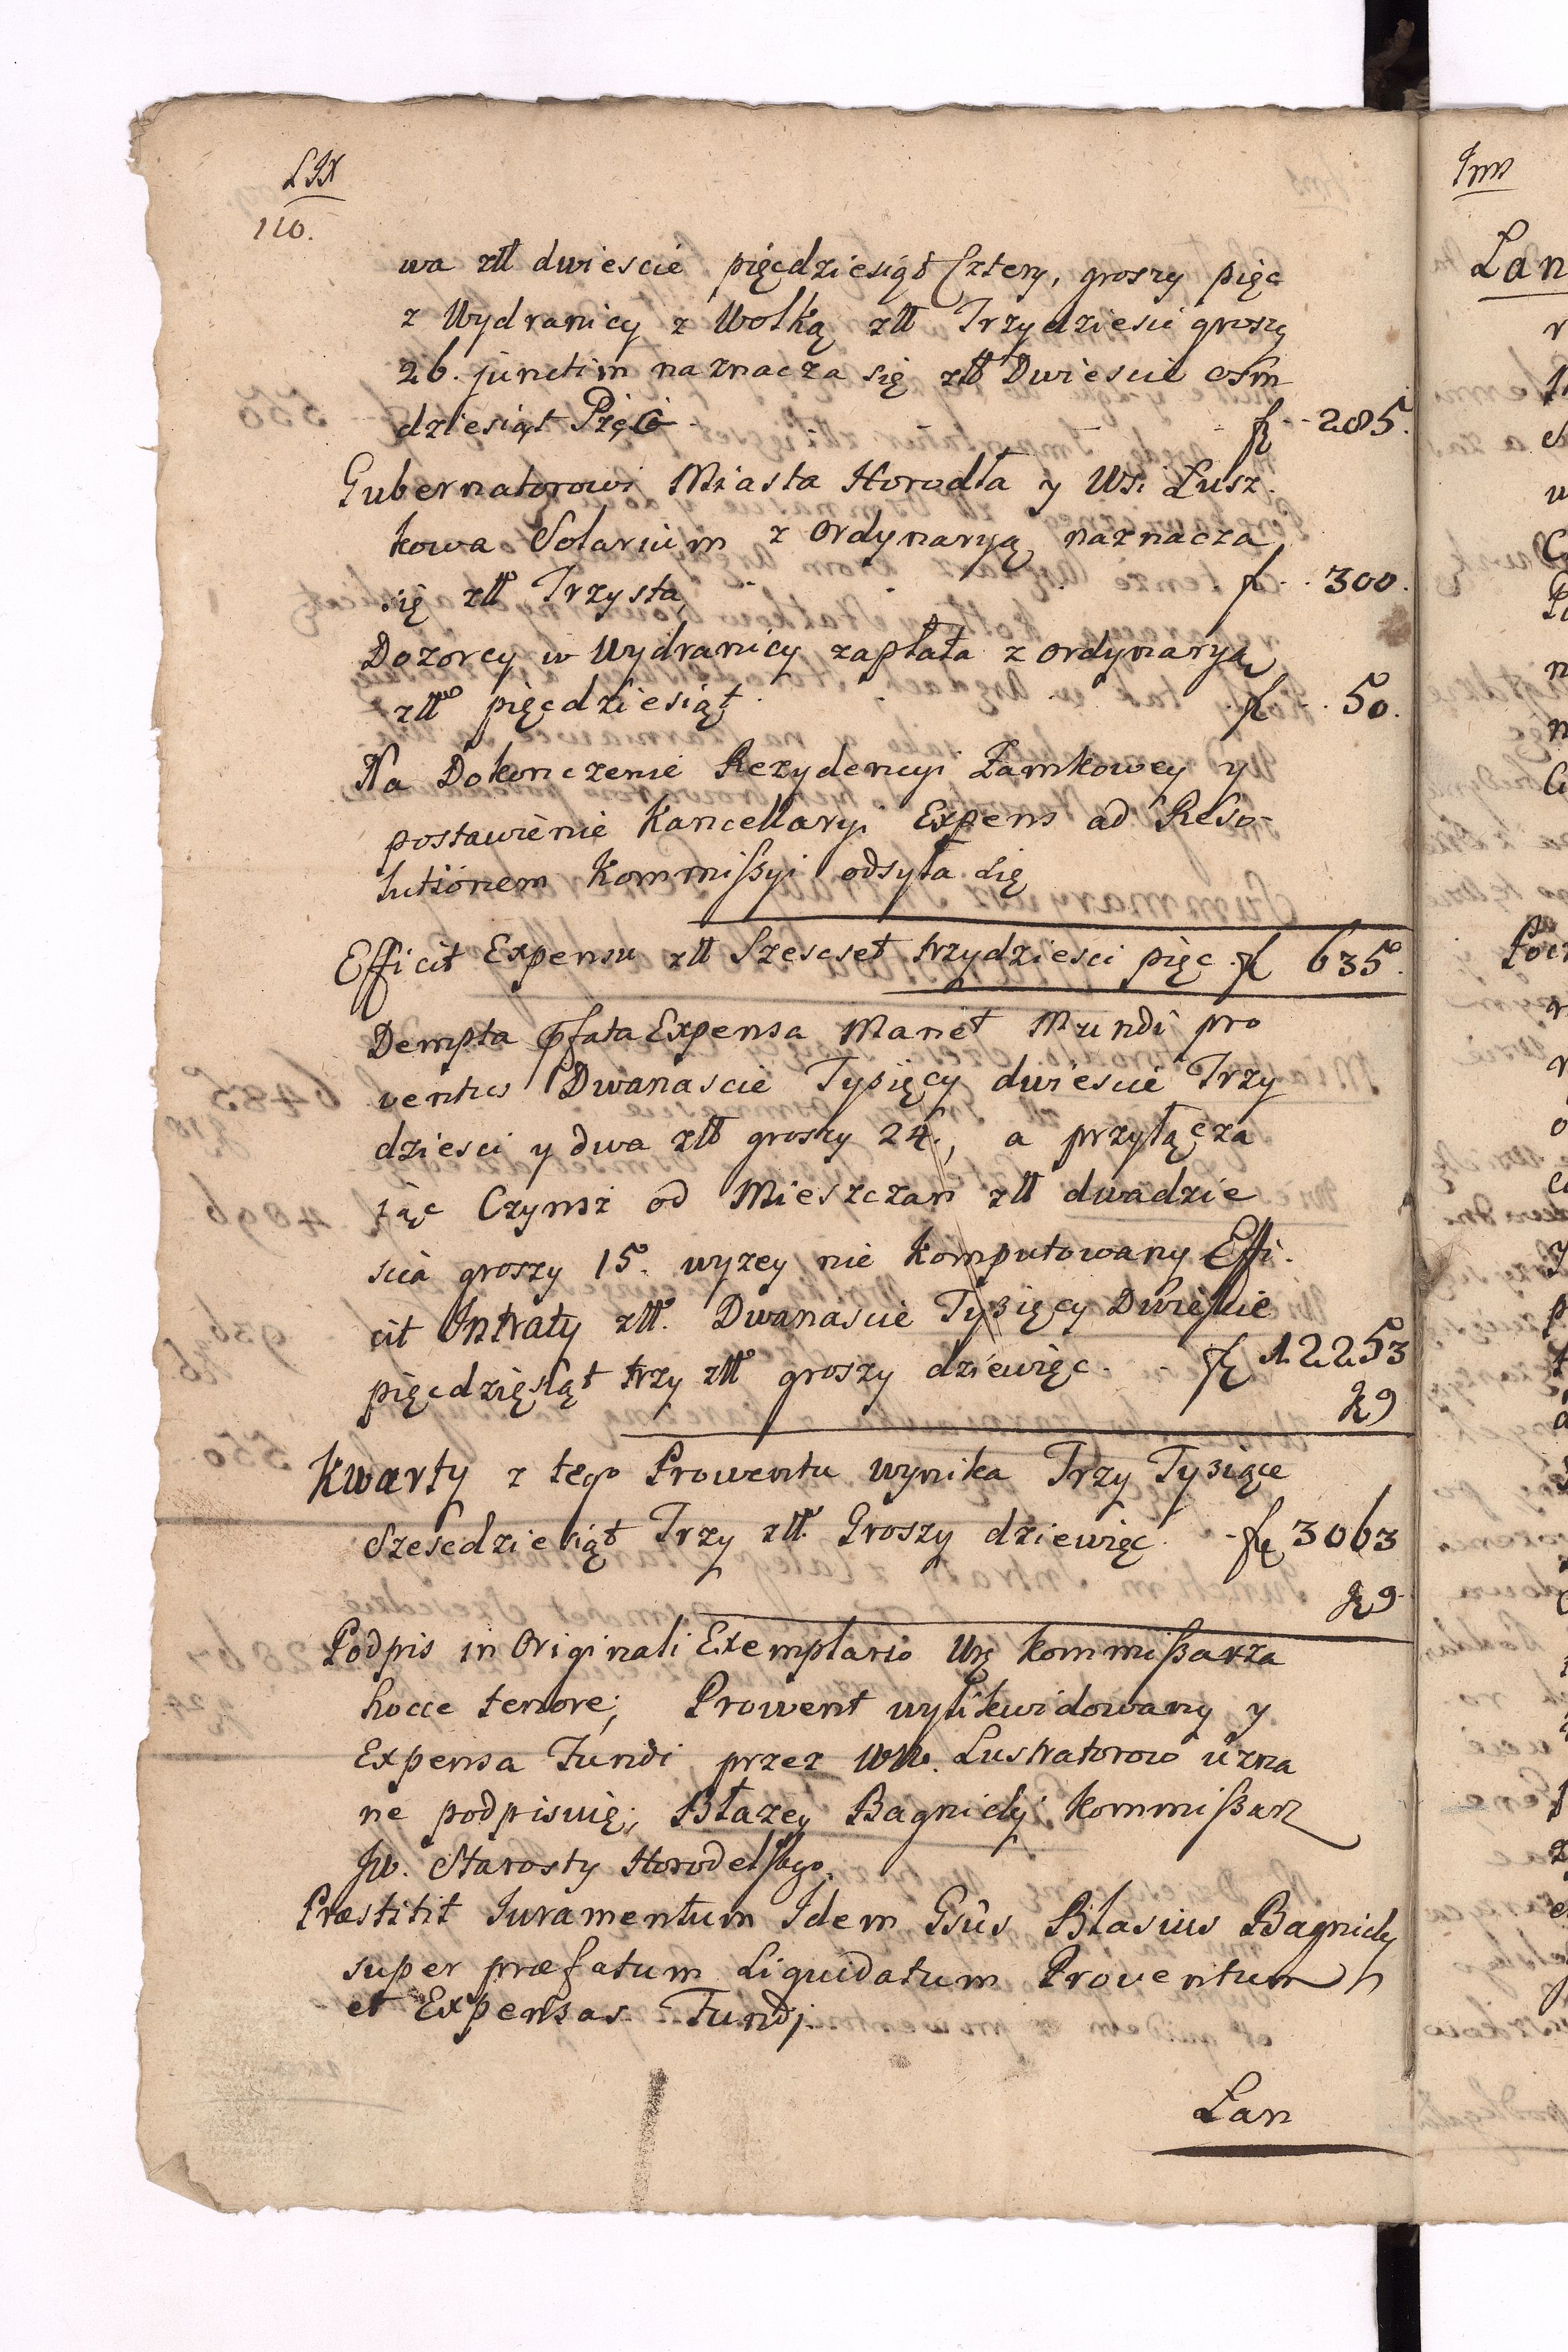 LIX
110.
wa złł dwiescie pięcdziesiąt Cztery, groszy pięc
z Wydranicy z Wolką złł Trzydziesci groszy
26. junctim naznacza się złł Dwiescie osm
dziesiąt Pięć fl 285.
Gubernatorowi Miasta Horodła y Wsi Łusz
kowa Solarium z ordynaryą naznacza
się złł Trzysta fl 300.
Dozorcy w Wydranicy zapłata z ordynaryą
złł pięcdziesiąt fl 50.
Na Dokonczenie Rezydencyi Zamkowey y
postawienie Kancellaryi Expens ad Reso-
lutionem Kommissyi odsyła się
Efficit Expensu złł Szescset trzydziesci pięc fl 635.
Dempta pfata Expensa Manet Mundi pro
ventus Dwanascie Tysięcy dwiescie Trzy
dziesci y dwa złł groszy 24., a przyłącza
jąc Czynsz od Mieszczan złł dwadzie
scia groszy 15. wyzey nie komputowany Effi.
cit Intraty złł. Dwanascie Tysięcy Dwiescie
pięcdziesiąt trzy złł groszy dziewięc fl 12253
g 9
Kwarty z tego Prowentu wynika Trzy Tysiące
Szescdziesiąt Trzy złł. Groszy dziewięc fl 3063
g 9
Podpis in Originali Exemplario Urg kommissarza
hocce tenore; Prowent wylikwidowany y
Expensa Fundi przez WW. Lustratorow uzna
ne podpisuię; Błazey Bagnicky kommissarz
Jw. Starosty Horodelskgo.
Præstitit Juramentum Idem Gsus Blasius Bagnicky
super præfatum Liquidatum Proventum
et Expensas Fundj.
Lan
Ims
Lan